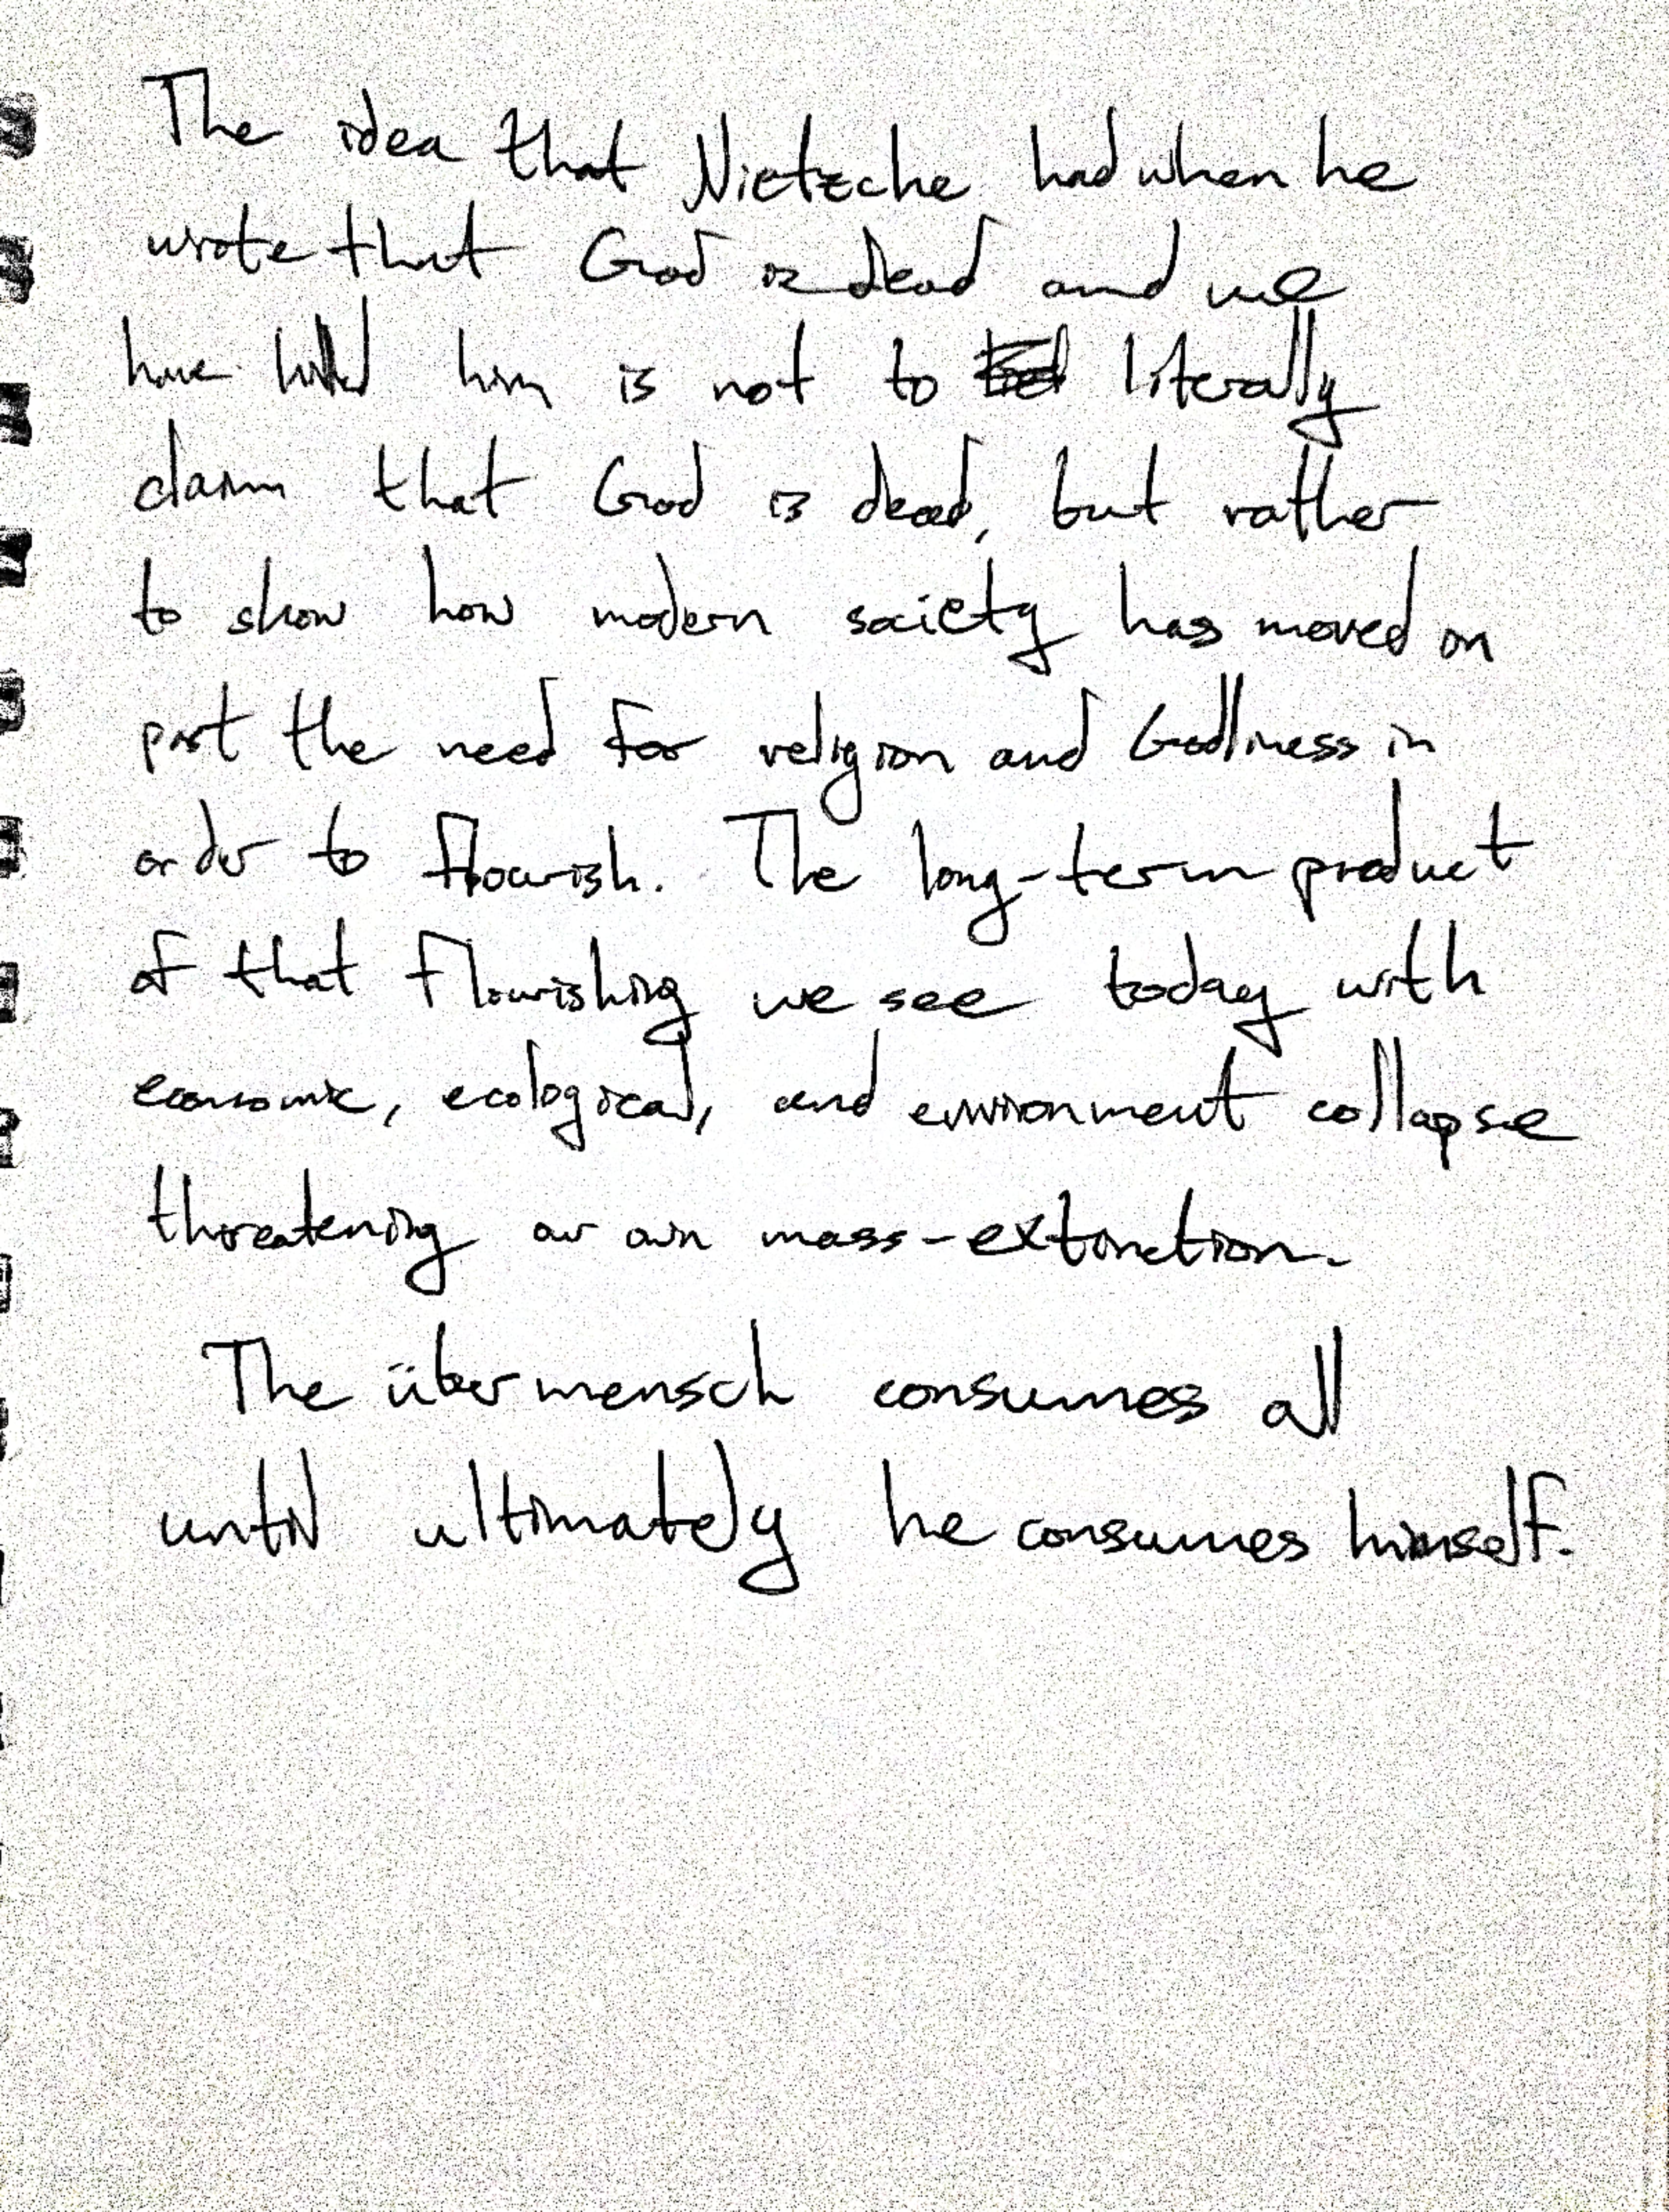 The idea that Nietzche had when he
wrote that God is dead and we
have killed him is not to literally
claim that God is dead, but rather
to show how modern society has moved on
past the need for religion and Godliness in
order to flourish. The long-term product
of that flourishing we see today with
economic, ecological, and environment collapse
threatening our own mass-extinction.
The übermensch consumes all
until ultimately he consumes himself.